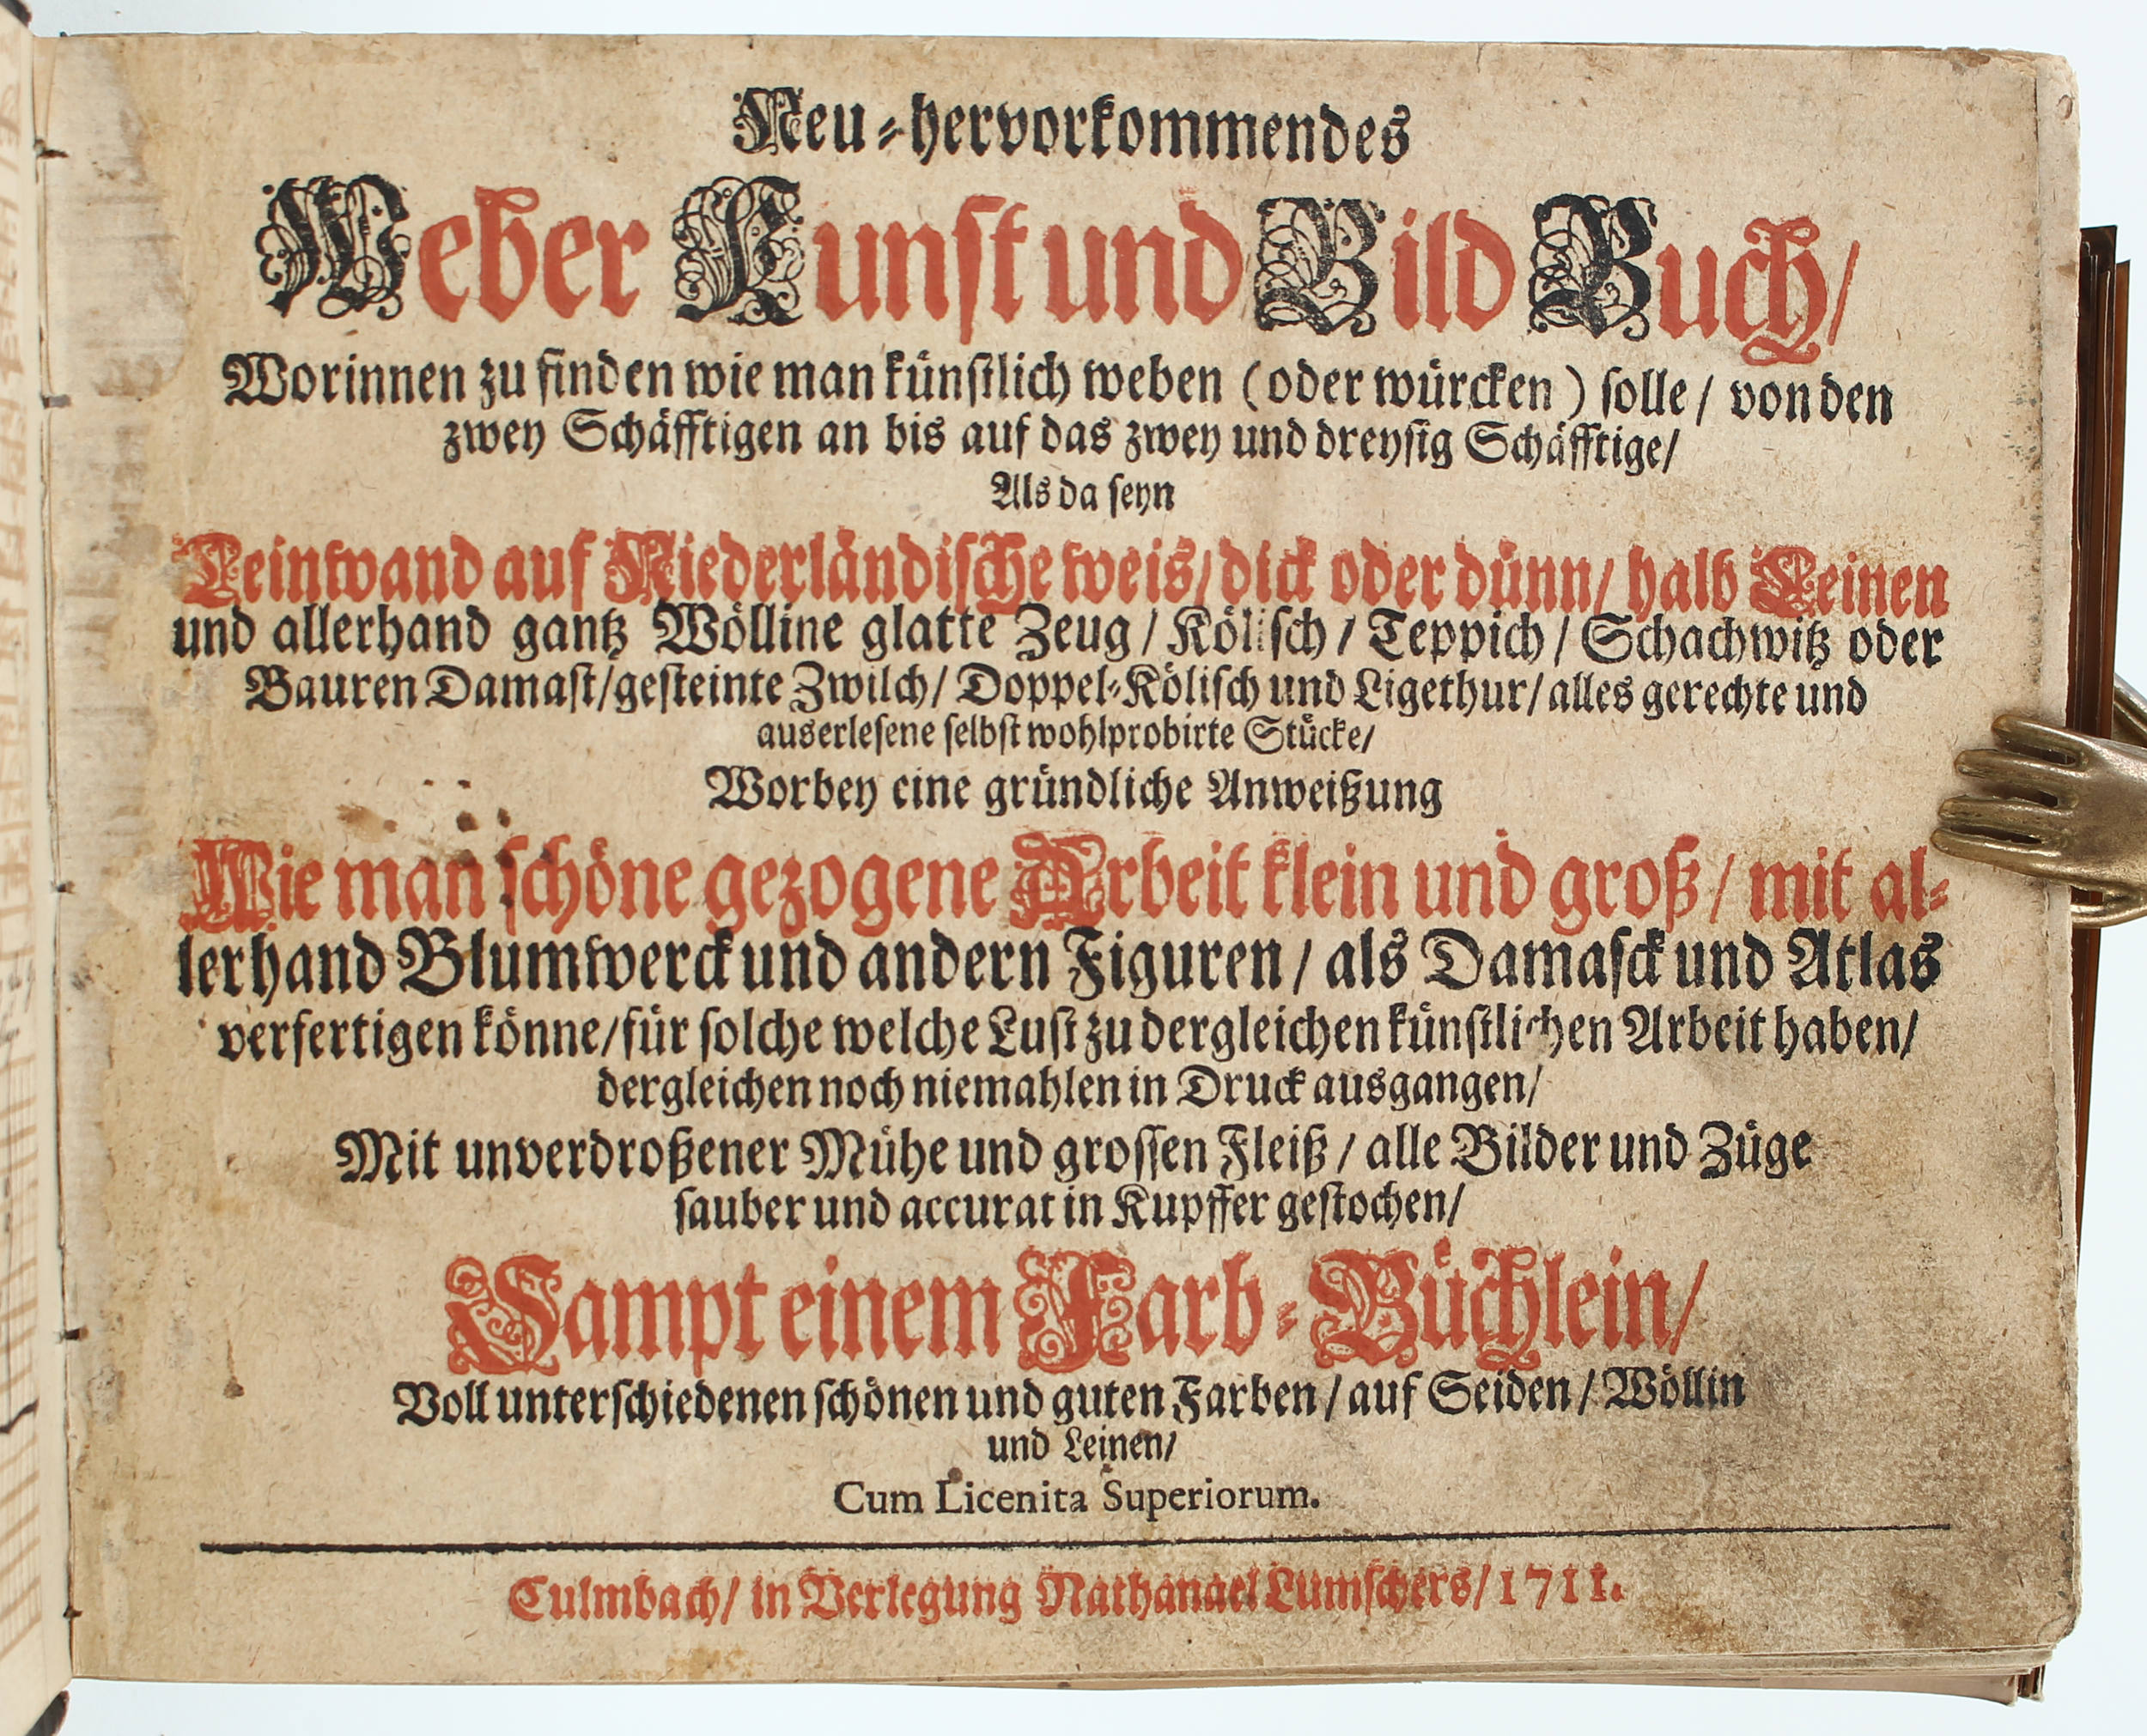 Neu-hervorkommendes
Weber Kunst und Bild Buch/
Worinnen zu finden wie man künstlich weben (oder würcken) solle/ von den
zwey Schäfftigen an bis auf das zwey und dreysig Schäfftige/
Als da seyn
Leinwand auf Niederländische weis/ dick oder dünn/ halb Leinen
und allerhand gantz Wölline glatte Zeug/ Kölisch/ Teppich/ Schachwitz oder
Bauren Damast/ gesteinte Zwilch/ Doppel-Kölisch und Ligethur/ alles gerechte und
auserlesene selbst wohlprobirte Stücke/
Worbey eine gründliche Anweißung
Wie man schöne gezogene Arbeit klein und groß/ mit al-
lerhand Blumwerck und andern Figuren/ als Damasck und Atlas
verfertigen könne/ für solche welche Lust zu dergleichen künstlichen Arbeit haben/
dergleichen noch niemahlen in Druck ausgangen/
Mit unverdroßener Mühe und grossen Fleiß/ alle Bilder und Züge
sauber und accurat in Kupffer gestochen/
Sampt einem Farb-Büchlein/
Voll unterschiedenen schönen und guten Farben/ auf Seiden/ Wöllin
und Leinen/
Cum Licenita Superiorum.
Culmbach/ in Verlegung Nathanael Lumschers/ 1711.